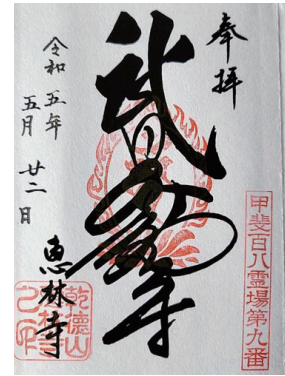 奉拝
甲斐百八霊場第九番
武田不動尊
令和五年
五月廿二日
恵林寺
乾徳山